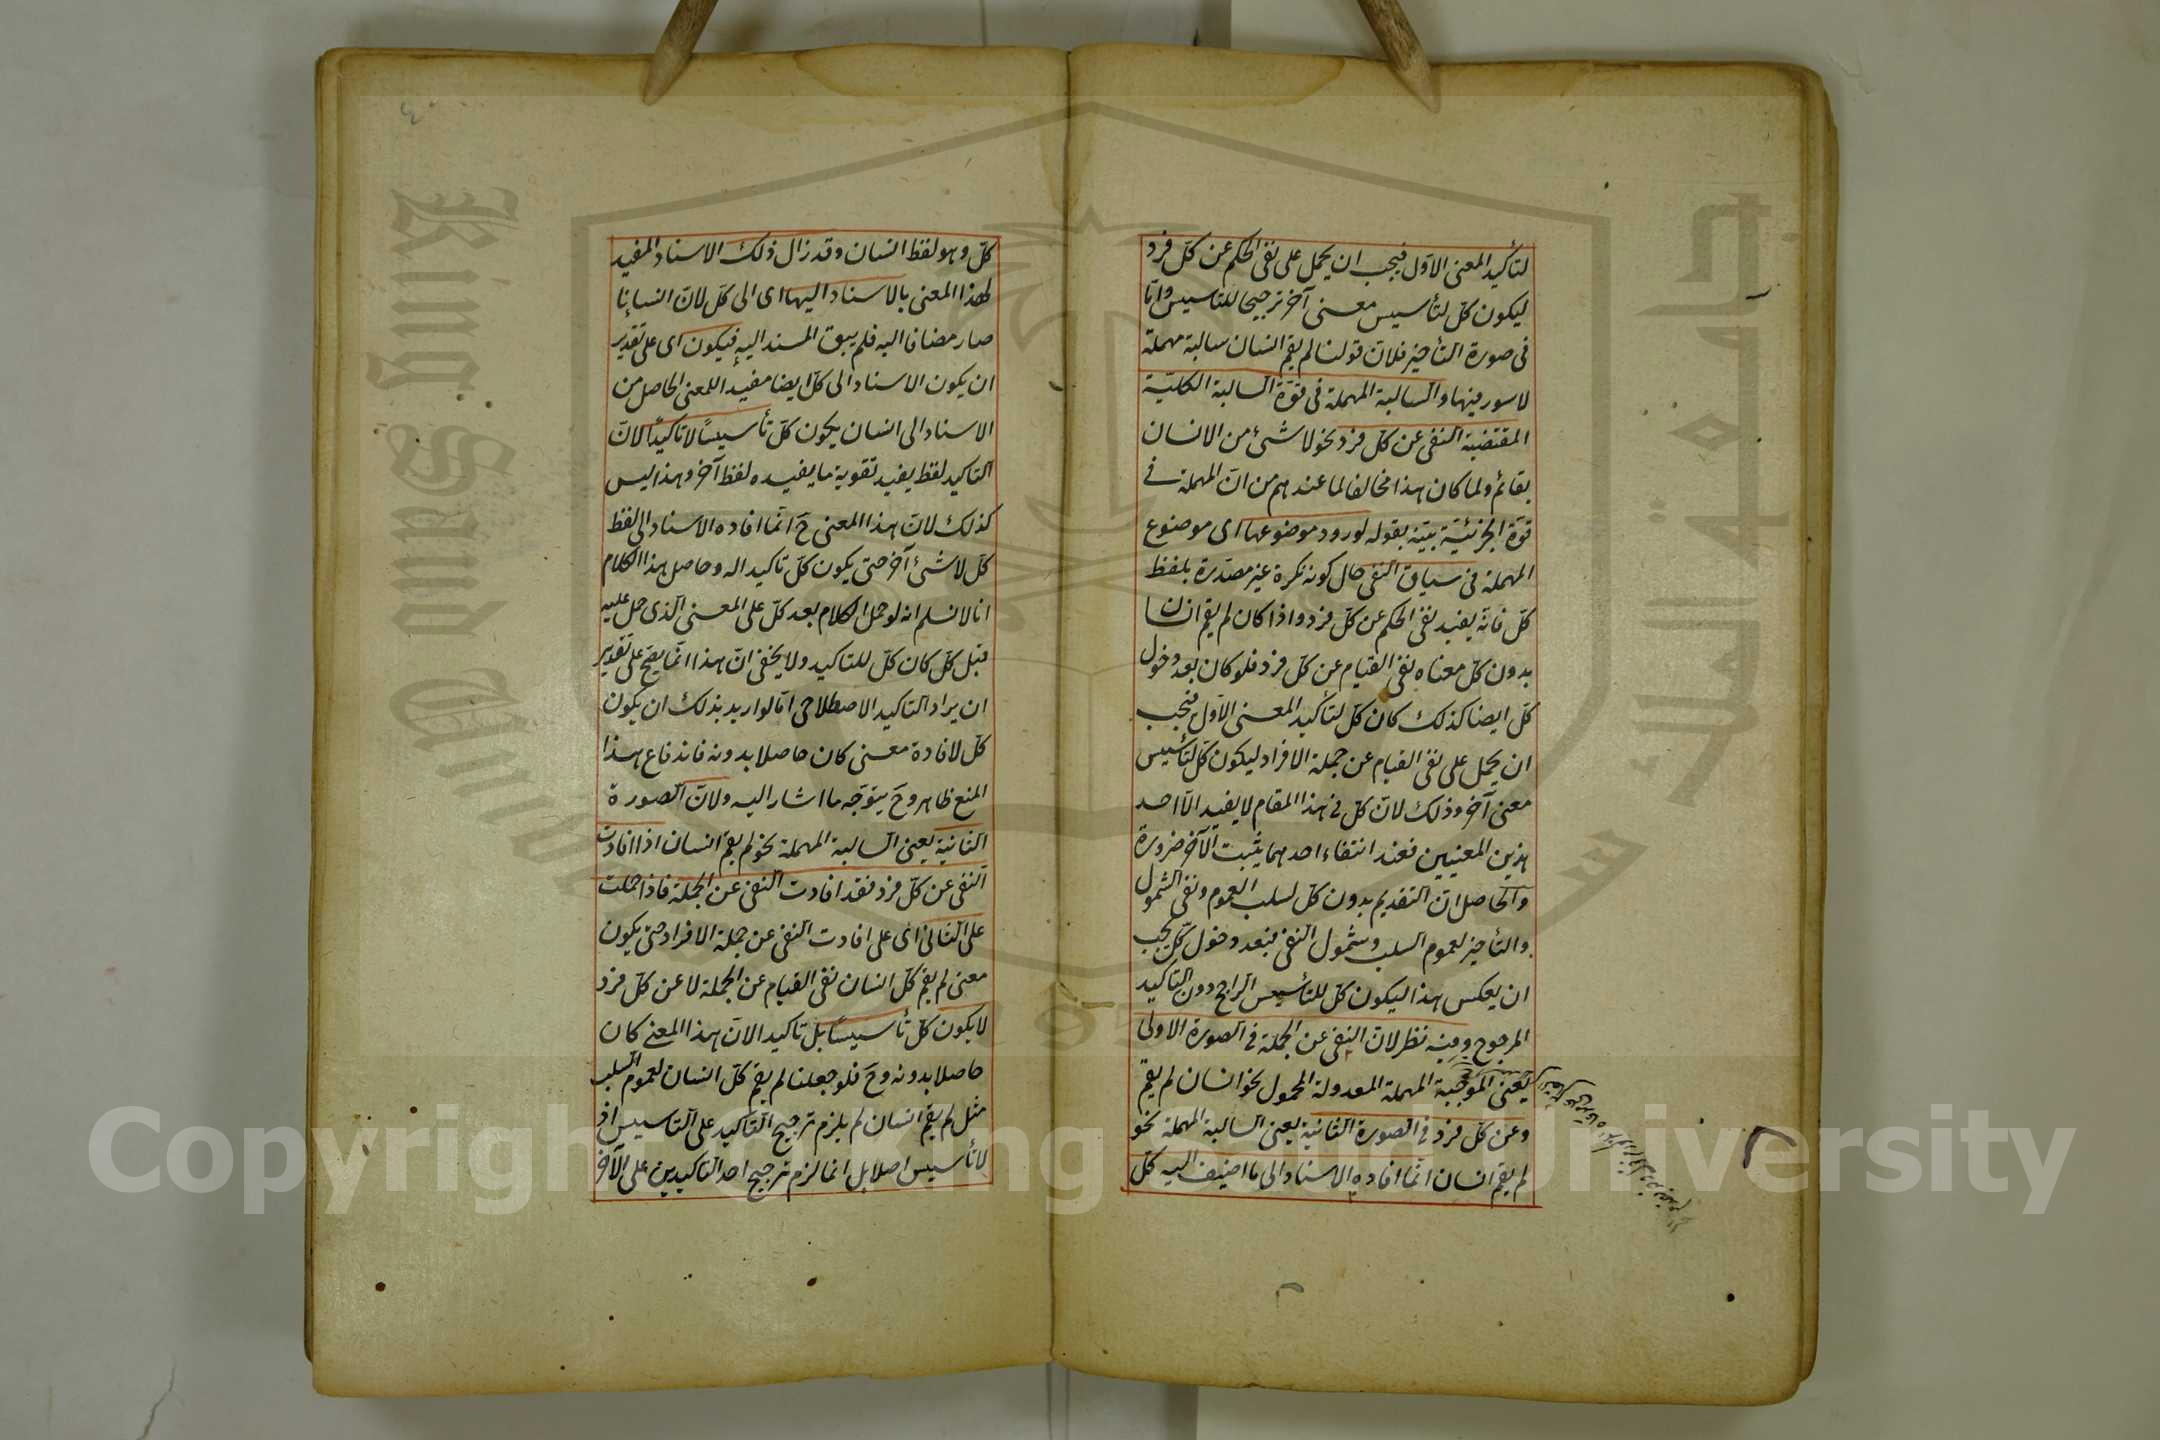 لتأكيد المعنى الاول فيجب ان يحمل على نفى الحكم عن كل فرد
ليكون كلّ لتأسيس معنى آخر ترجيحا للتاسيس وامّا
فى صورة التأخير فلانّ قولنا لم يقم انسان سالبة مهملة
لا سور فيها والسالبة المهملة فى قوّة السالبة الكليّة
المقتضية النفى عن كلّ فرد نحو لا شئ من الانسان
بقائم ولما كان هذا مخالفا لما عندهم من انّ المهملة فى
قوّة الجزئيّة بيّنه بقوله لورود موضوعها اى موضوع
المهملة فى سياق النفى حال كونه نكرة غير مصدّرة بلفظ
كلّ فانه يفيد نفى الحكم عن كلّ فرد واذا كان لم يقم انسان
بدون كلّ معناه نفى القيام عن كلّ فرد فلو كان بعد دخول
كلّ ايضا كذلك كان كلّ لتأكيد المعنى الاوّل فيجب
ان يحمل على نفى القيام عن جملة الافراد ليكون كلّ لتأسيس
معنى آخر وذلك لانّ كلّ فى هذا المقام لا يفيد الّا احد
هذين المعنيين فعند انتفاء احدهما يثبت الآخر ضرورة
والحاصل انّ التقديم بدون كلّ لسلب العموم ونفى الشمول
والتأخير لعموم السلب وشمول النفى فبعد دخول كلّ يجب
ان يعكس هذا ليكون كلّ للتأسيس الراجح دون التاكيد
المرجوح وفيه نظر لانّ النفى عن الجملة فى الصورة الاولى
يعنى الموجبة المهملة المعدولة المحمول نحو انسان لم يقم
وعن كلّ فرد فى الصورة الثانية يعنى السالبة المهملة نحو
لم يقم انسان انّما افاده الاسناد الى ما اضيف اليه كلّ
كلّ وهو لفظ انسان وقد زال ذلك الاسناد المفيد
لهذا المعنى بالاسناد اليها اى الى كلّ لانّ انسانا
صار مضافا اليه فلم يبق المسند اليه فيكون اى على تقدير
ان يكون الاسناد الى كلّ ايضا مفيدا للمعنى الحاصل من
الاسناد الى انسان يكون كلّ تأسيسًا لا تاكيدًا لانّ
التاكيد لفظ يفيد تقوية ما يفيده لفظ آخر وهذا ليس
كذلك لانّ هذا المعنى ح انّما افاده الاسناد الى لفظ
كلّ لا شئ آخر حتى يكون كلّ تاكيدا له وحاصل هذا الكلام
انا لا نسلم انه لو حمل الكلام بعد كلّ على المعنى الذى حمل عليه
قبل كلّ كان كلّ للتاكيد ولا يخفى انّ هذا انّما يصحّ على تقدير
ان يراد التاكيد الاصطلاحى امّا لو اريد بذلك ان يكون
كلّ لافادة معنى كان حاصلا بدونه فاندفاع هذا
المنع ظاهر وح يتوجّه ما اشار اليه ولانّ الصورة
الثانية يعنى السالبة المهملة نحو لم يقم انسان اذا افادت
النفى عن كلّ فرد فقد افادت النفى عن الجملة فاذا حملت
على الثانى اى على افادت النفى عن جملة الافراد حتى يكون
معنى لم يقم كلّ انسان نفى القيام عن الجملة لا عن كلّ فرد
لا يكون كلّ تأسيسًا بل تاكيدا لانّ هذا المعنى كان
حاصلا بدونه وح فلو جعلنا لم يقم كلّ انسان لعموم السلب
مثل لم يقم انسان لم يلزم ترجيح التاكيد على التاسيس اذ
لا تأسيس اصلا بل انما لزم ترجيح احد التاكيدين على الآخر
King Saud University
Copyright © King Saud University